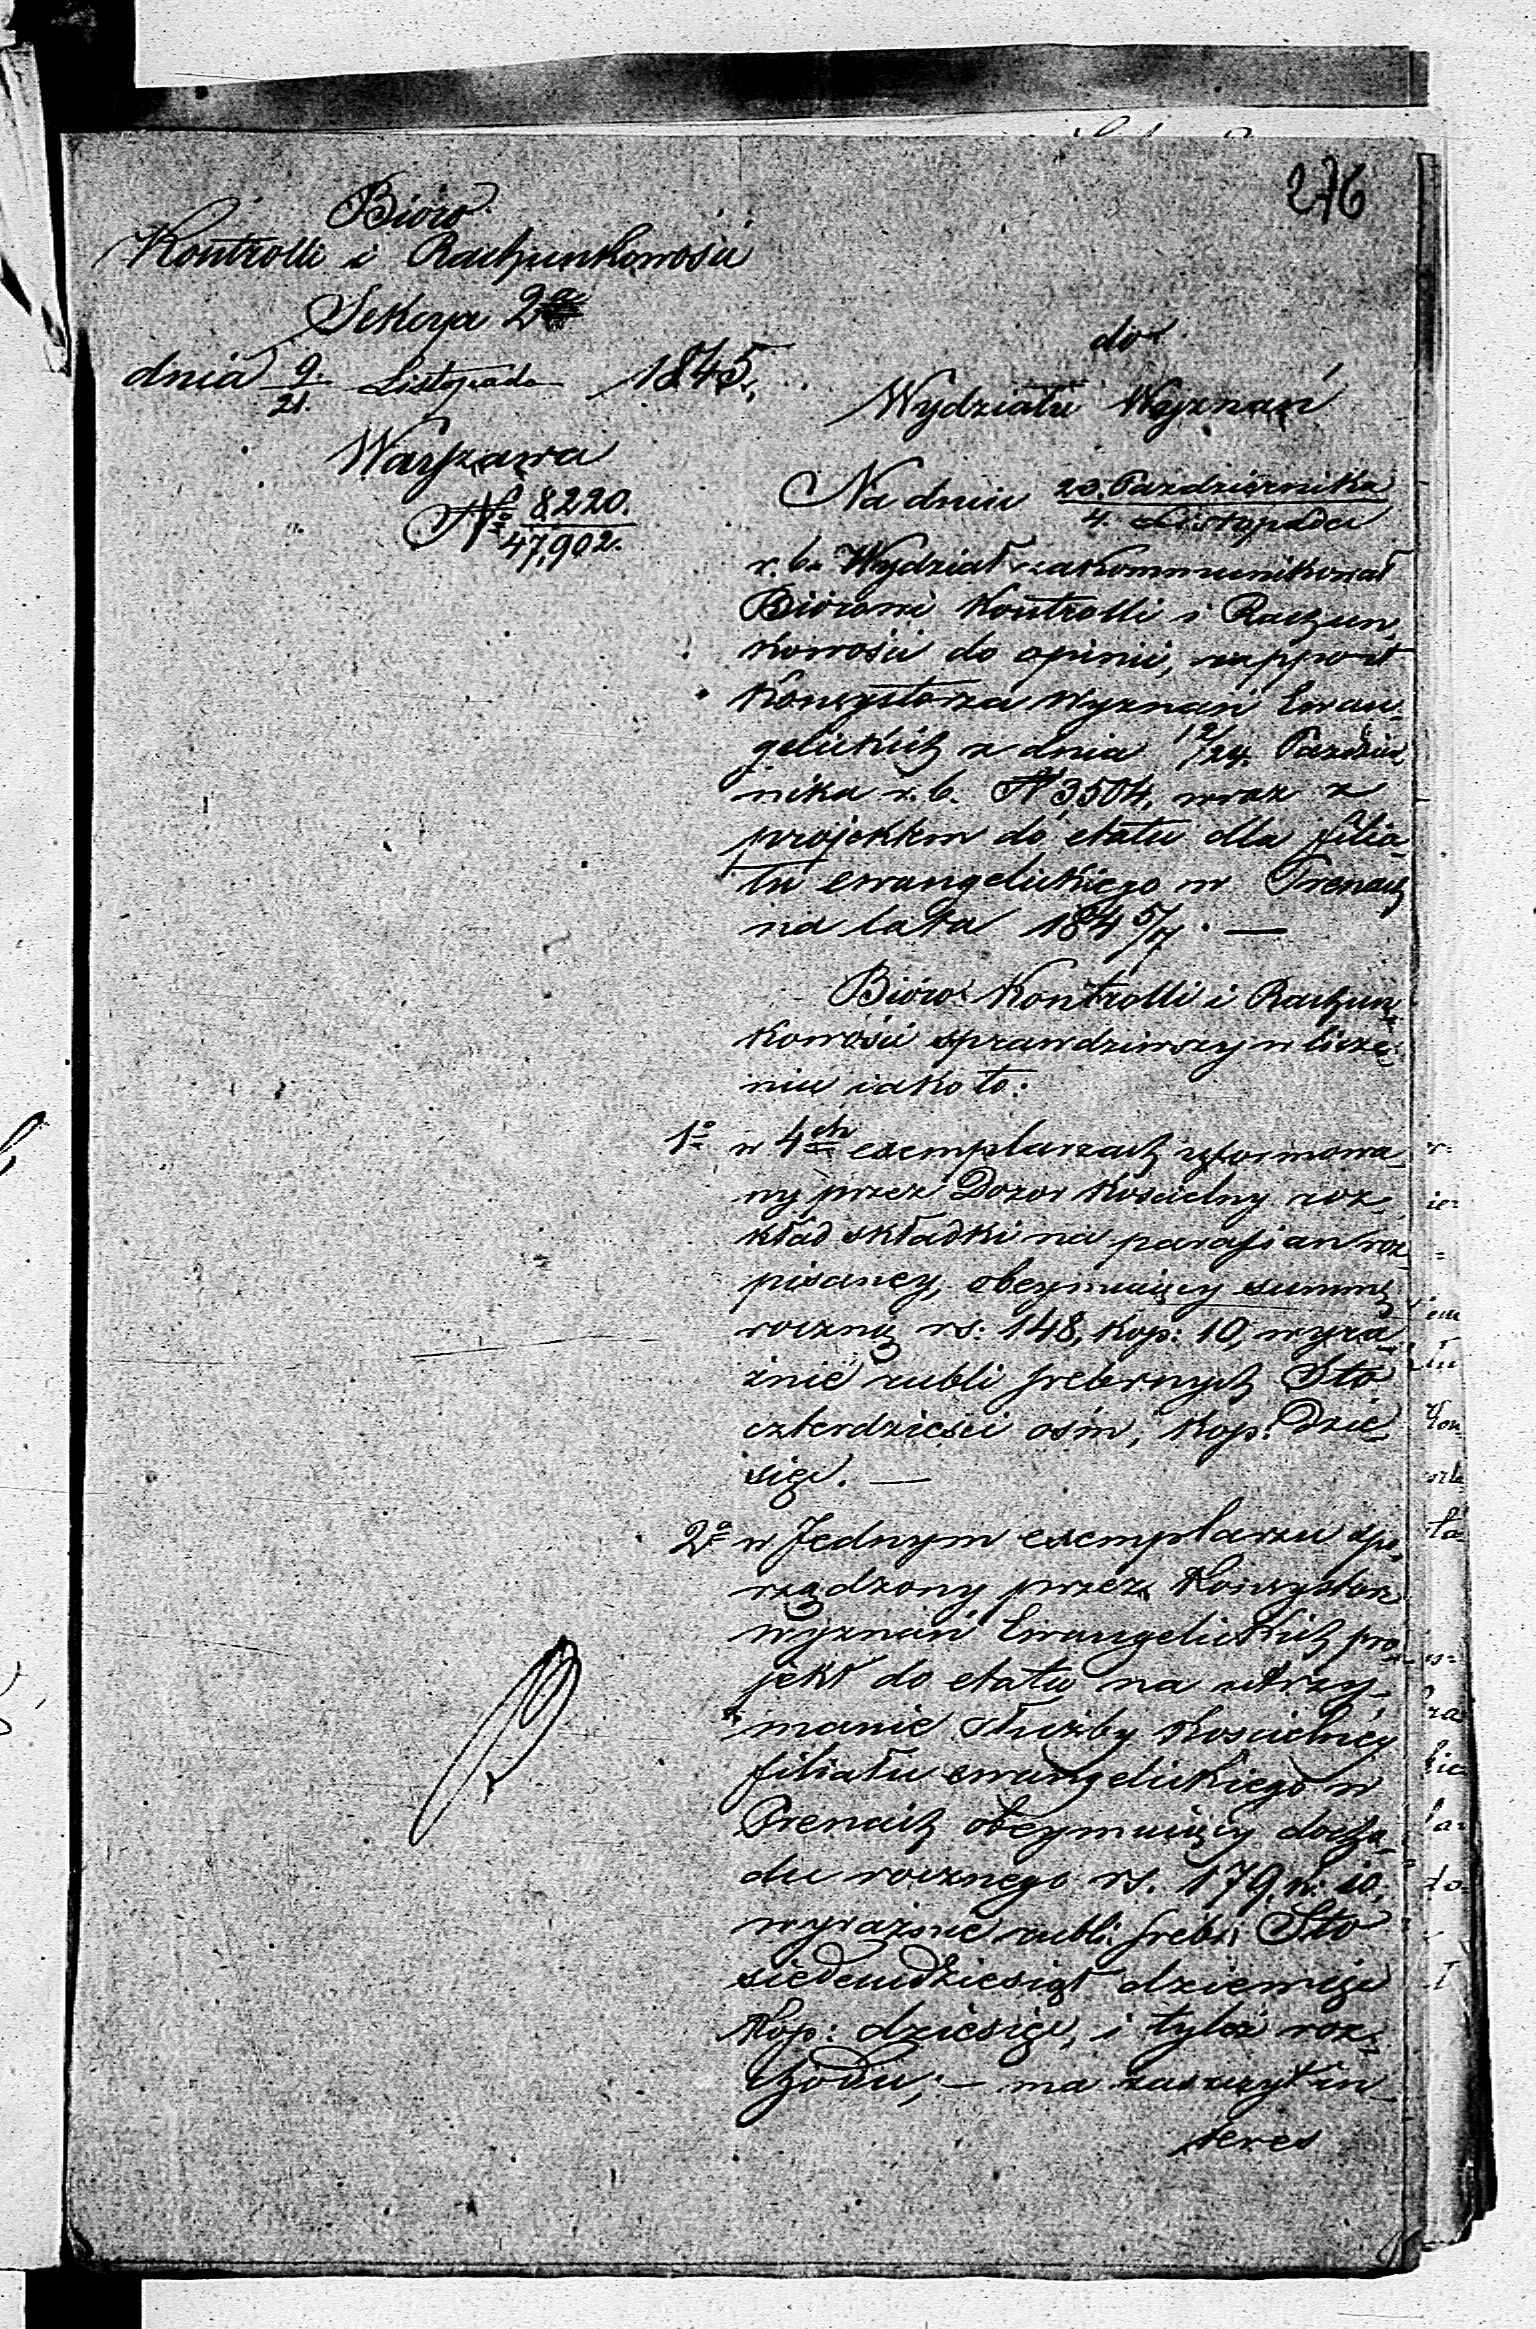 276
Bióro
Kontrolli i Rachunkowości
Sekcya 2a
dnia 9/21. Listopada 1845.
Warszawa
No 8220./47,902.
do
Wydziału Wyznań
Na dniu 20. Października/4. Listopada
r. b. Wydział zakommunikował
Biórowi Kontrolli i Rachun-
kowości do opinii, rapport
Konsystorza Wyznań Ewan-
gelickich z dnia 12/24. Paździer
nika r. b. N 3504, wraz z
projektem do etatu dla filia-
łu ewangelickiego w Prenach
na lata 184 5/7. —
Bióro Kontrolli i Rachun-
kowości sprawdziwszy w licze-
niu iako to:
1o w 4ch exemplarzach uformowa-
ny przez Dozór Kościelny roz-
kład składki na parafian roz-
pisaney, obeymuiący summę
roczną rs: 148, kop: 10, wyra-
źnie rubli srebrnych Sto
czterdzieści ośm, kop: Dzie-
sięć. —
2o w Jednym exemplarzu spo-
rządzony przez Konsystorz
wyznań Ewangelickich pro-
jekt do etatu na utrzy-
manie służby Kościelney
filiału ewangelickiego w
Prenach obeymuiący docho-
du rocznego rs. 179, k: 10,
wyraźnie rubli sreb: Sto
siedemdziesiąt dziewięć
Kop: dziesięć, i tyleż roz-
chodu; — ma zaszczyt in-
teres